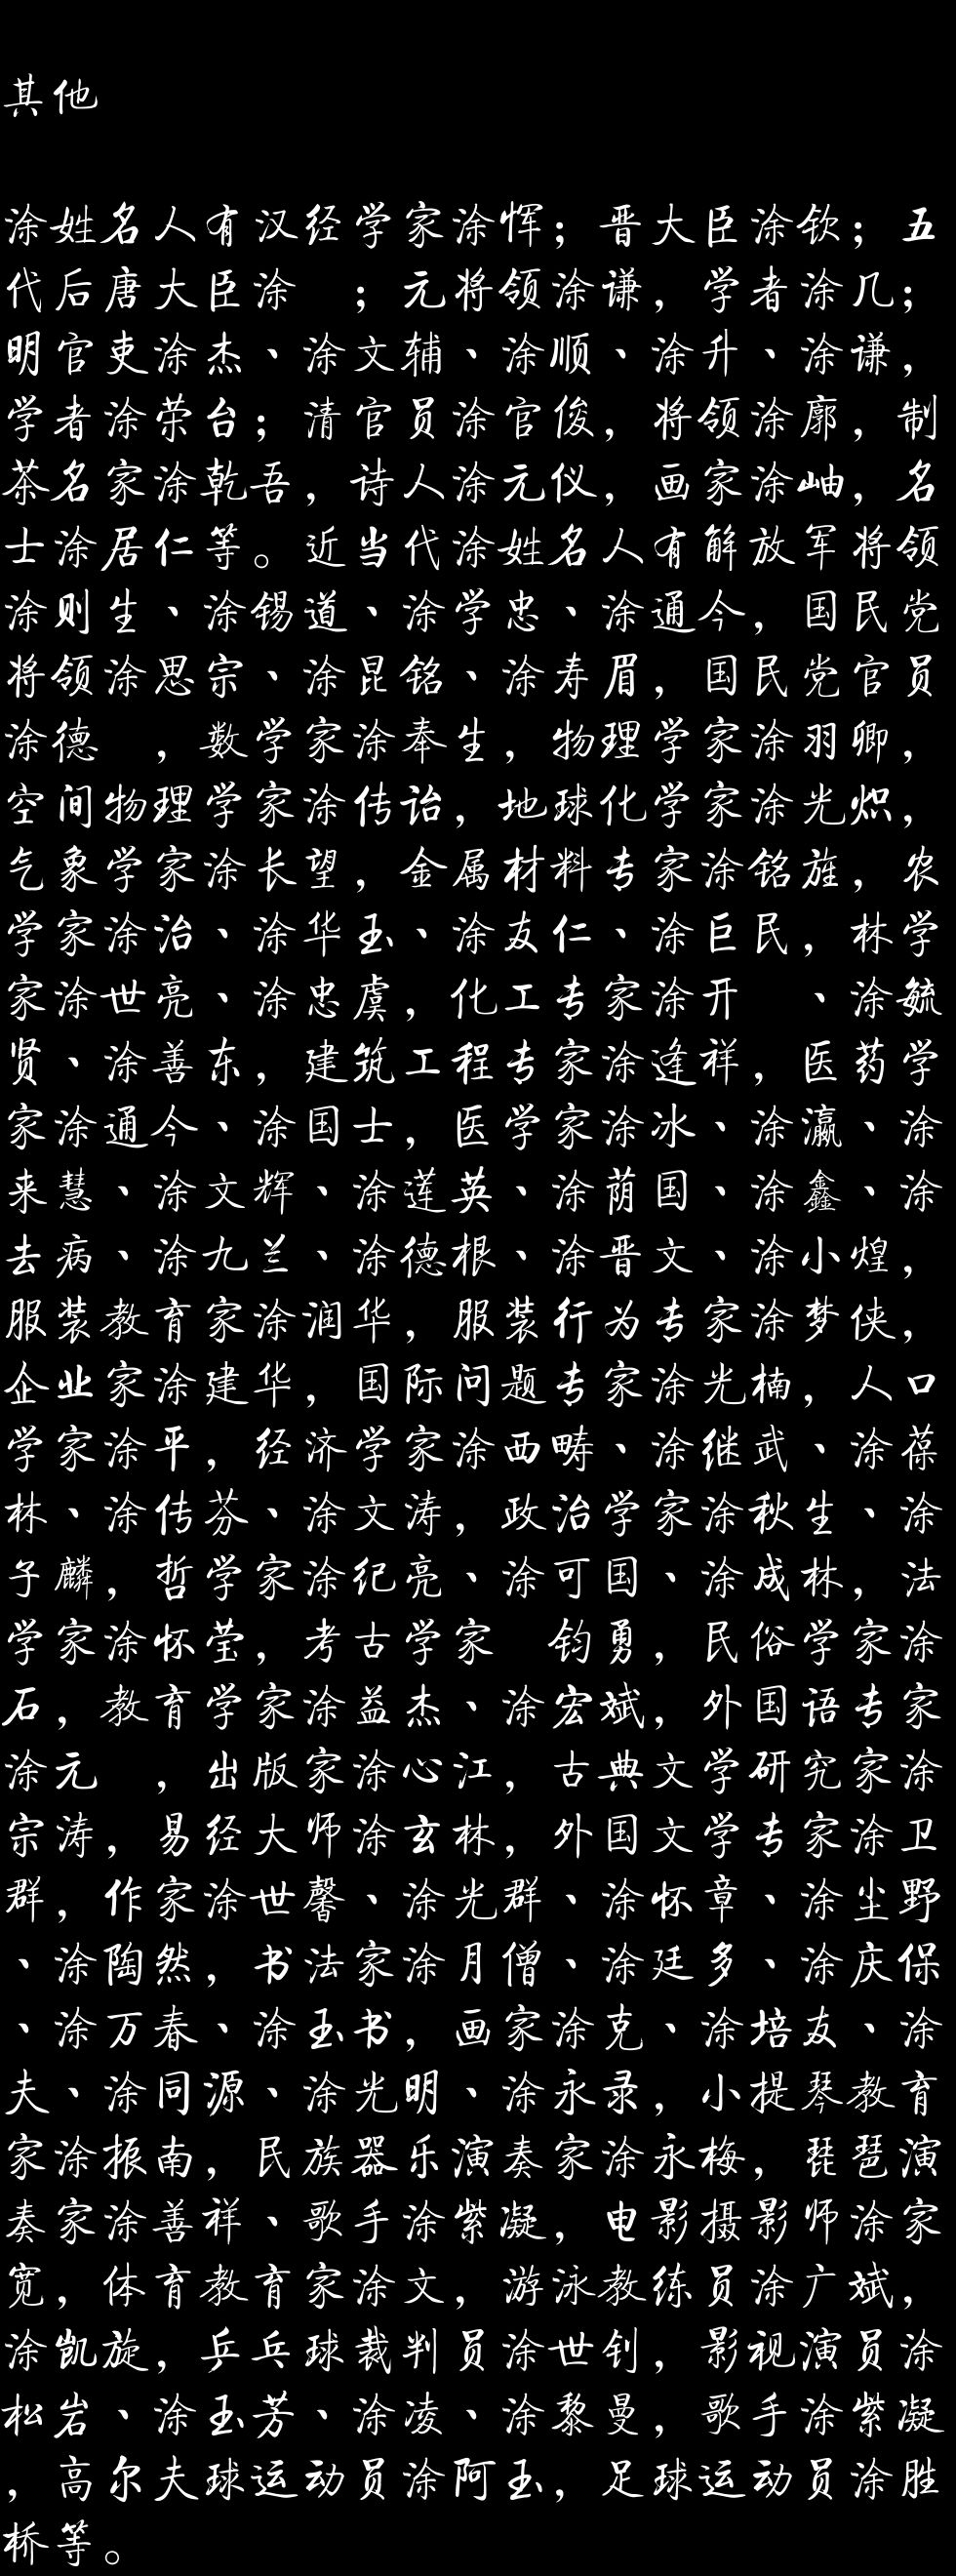 其他
涂姓名人有汉经学家涂恽；晋大臣涂钦；五
代后唐大臣涂　；元将领涂谦，学者涂几；
明官吏涂杰、涂文辅、涂顺、涂升、涂谦，
学者涂荣台；清官员涂官俊，将领涂廓，制
茶名家涂乾吾，诗人涂元仪，画家涂岫，名
士涂居仁等。近当代涂姓名人有解放军将领
涂则生、涂锡道、涂学忠、涂通今，国民党
将领涂思宗、涂昆铭、涂寿眉，国民党官员
涂德　，数学家涂奉生，物理学家涂羽卿，
空间物理学家涂传诒，地球化学家涂光炽，
气象学家涂长望，金属材料专家涂铭旌，农
学家涂治、涂华玉、涂友仁、涂巨民，林学
家涂世亮、涂忠虞，化工专家涂开　、涂毓
贤、涂善东，建筑工程专家涂逢祥，医药学
家涂通今、涂国士，医学家涂冰、涂瀛、涂
来慧、涂文辉、涂莲英、涂荫国、涂鑫、涂
去病、涂九兰、涂德根、涂晋文、涂小煌，
服装教育家涂润华，服装行为专家涂梦侠，
企业家涂建华，国际问题专家涂光楠，人口
学家涂平，经济学家涂西畴、涂继武、涂葆
林、涂传芬、涂文涛，政治学家涂秋生、涂
子麟，哲学家涂纪亮、涂可国、涂成林，法
学家涂怀莹，考古学家　钧勇，民俗学家涂
石，教育学家涂益杰、涂宏斌，外国语专家
涂元　，出版家涂心江，古典文学研究家涂
宗涛，易经大师涂玄林，外国文学专家涂卫
群，作家涂世馨、涂光群、涂怀章、涂尘野
、涂陶然，书法家涂月僧、涂廷多、涂庆保
、涂万春、涂玉书，画家涂克、涂培友、涂
夫、涂同源、涂光明、涂永录，小提琴教育
家涂振南，民族器乐演奏家涂永梅，琵琶演
奏家涂善祥、歌手涂紫凝，电影摄影师涂家
宽，体育教育家涂文，游泳教练员涂广斌，
涂凯旋，乒乓球裁判员涂世钊，影视演员涂
松岩、涂玉芳、涂凌、涂黎曼，歌手涂紫凝
，高尔夫球运动员涂阿玉，足球运动员涂胜
桥等。